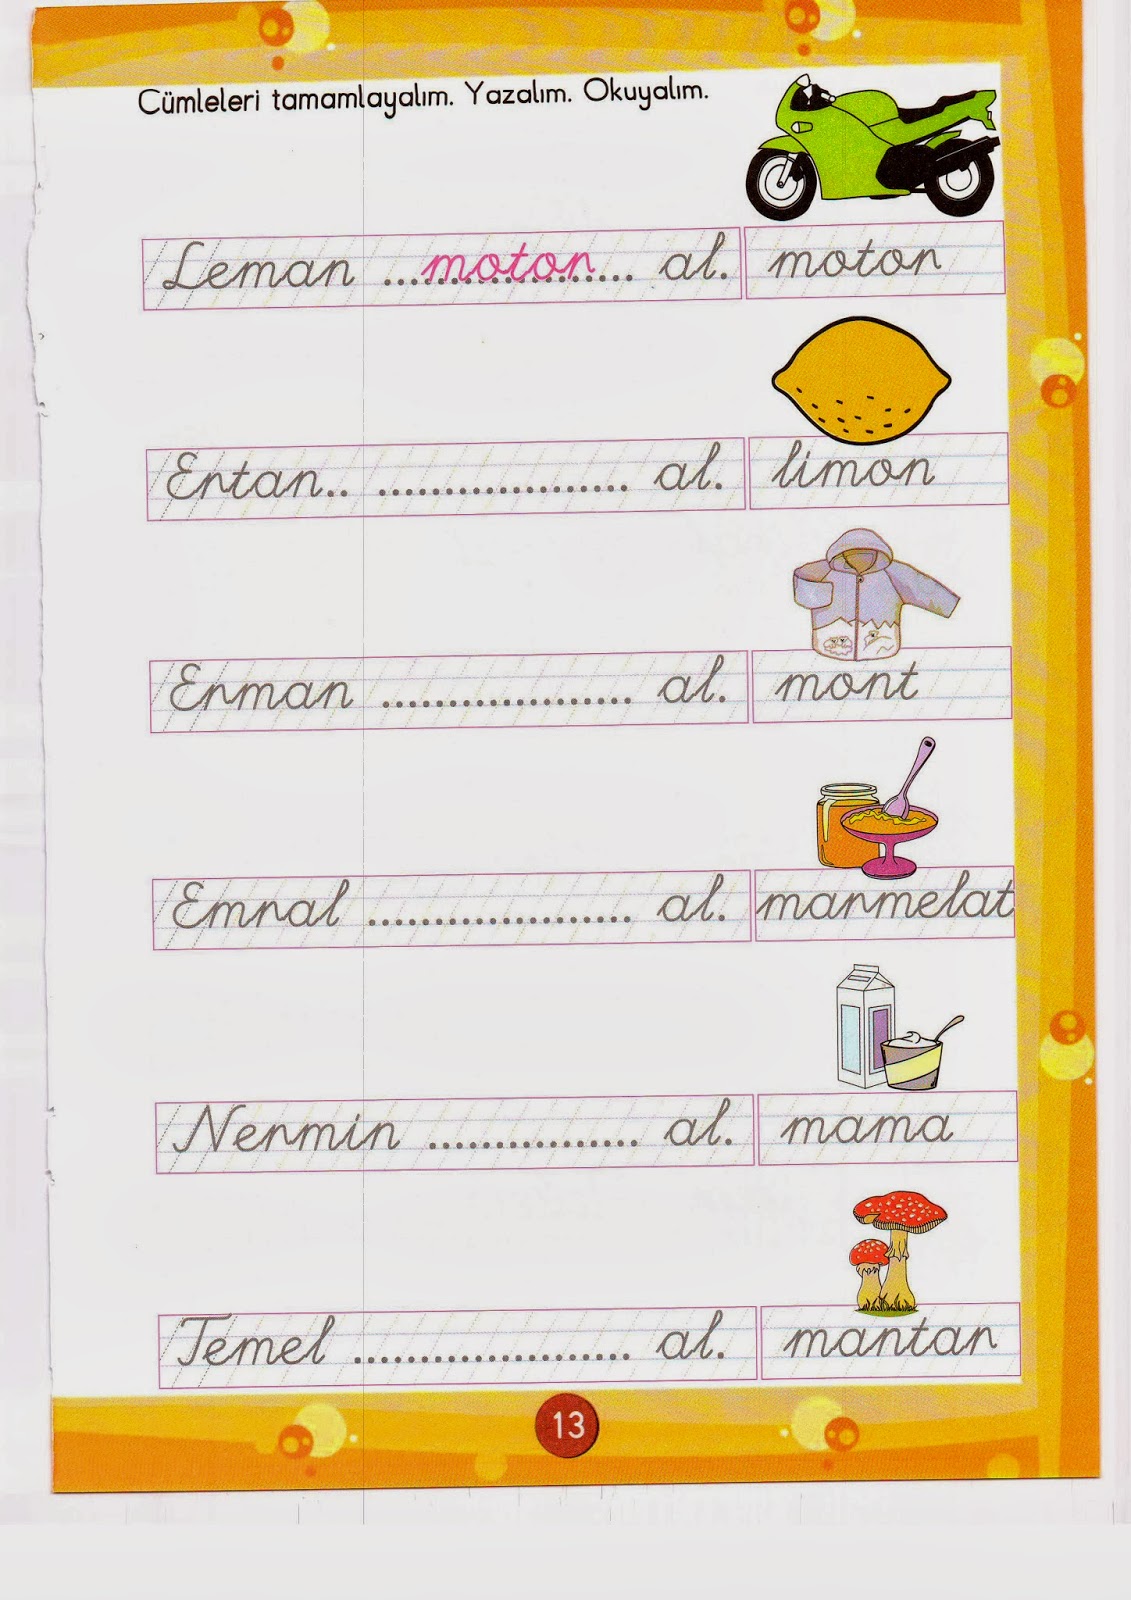 Cümleleri tamamlayalım. Yazalım. Okuyalım.
Leman ...motor... al. motor
Ertan.. ................... al. limon
Erman ................... al. mont
Emral .................... al. marmelat
Nermin ................ al. mama
Temel ..................... al. mantar
13